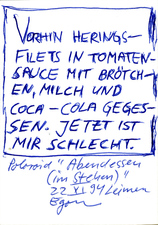 VORHIN HERINGS-
FILETS IN TOMATEN-
SAUCE MIT BRÖTCH-
EN, MILCH UND
COCA-COLA GEGES-
SEN. JETZT IST
MIR SCHLECHT.
Polaroid "Abendessen
(im Stehen)"
22 VI 94 Leimen
Egon